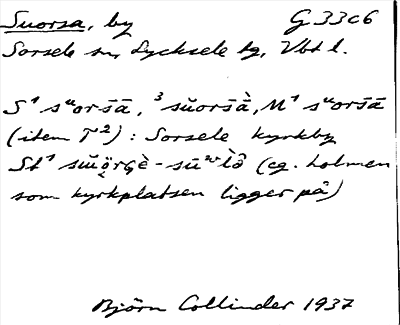 Suorsa, by G 33c6
Sorsele sn, Lycksele tg, Vbt l.
S¹ sᵘoršā, ³ sŭoršā̀, M¹ sᵘoršā
(item T²): Sorsele kyrkby
St¹ - (eg. holmen
som kyrkplatsen ligger på)
Björn Collinder 1937